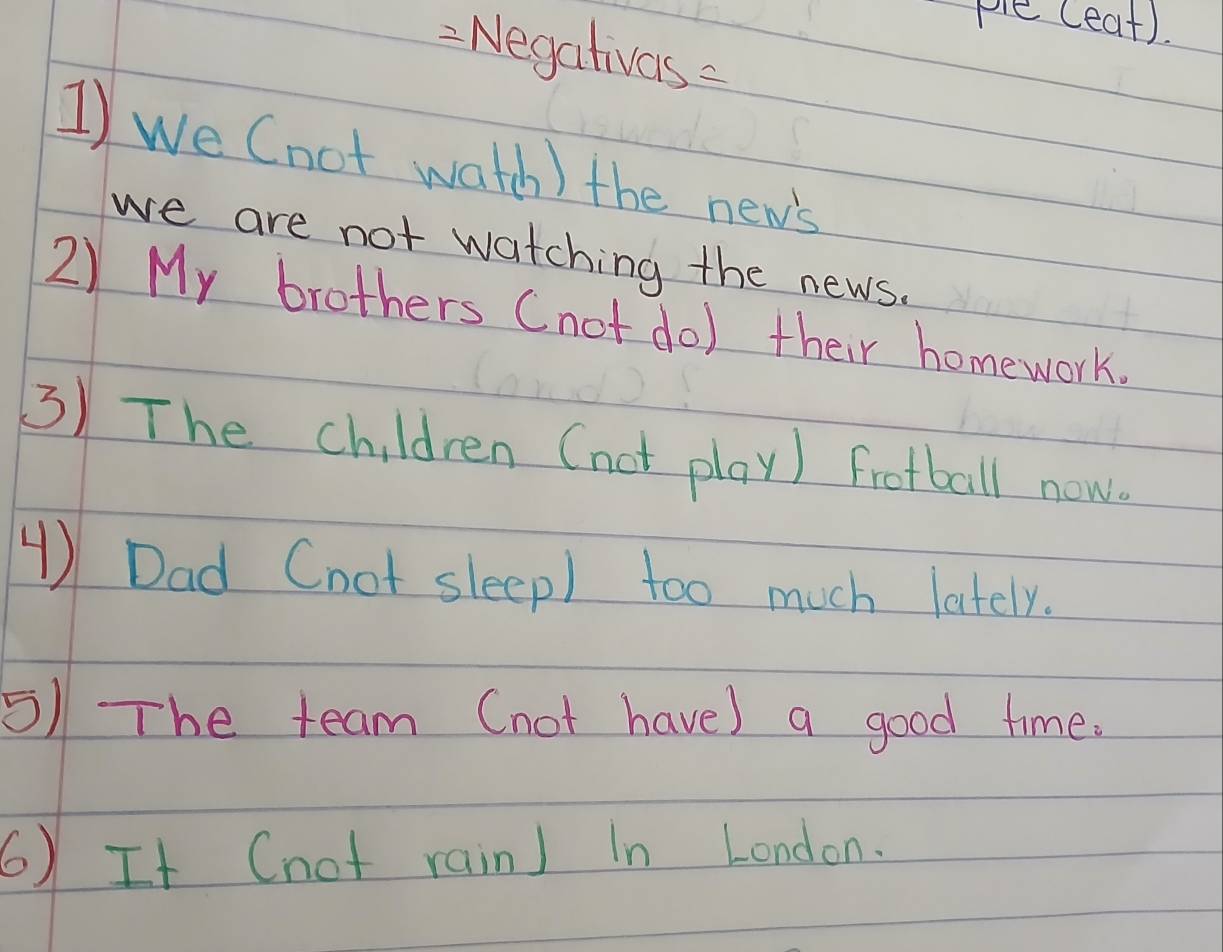 pie (eat).
=Negativas=
1) We (not watch) the new's
we are not watching the news.
2) My brothers (not do) their homework.
3) The children (not play) Frotball now.
4) Dad (not sleep) too much lately.
5) The team (not have) a good time.
6) It (not rain) In London.